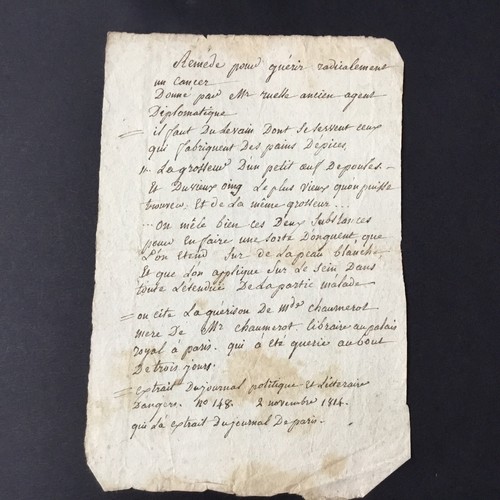 Remède pour guérir radicalement
un Cancer
Donné par Mr ruelle ancien agent
Diplomatique
il faut Du Levain Dont Se Servent ceux
qui fabriquent Des pains Dépices,
La grosseur D'un petit œuf De poules. -
Et Du vieux oing Le plus vieux qu'on puisse
trouver, Et De La même grosseur...
... On mêle bien ces Deux Substances
pour En faire une sorte D'onguent, que
L'on Etend Sur De La peau blanche
Et que L'on applique Sur Le Sein Dans
toute L'etendue De La partie malade
on cite La guérison De mde Chaumerot
mere De Mr Chaumerot. libraire au palais
royal à paris. qui à Eté guerie au bout
De trois jours.
extrait Du journal politique et Litteraire
D'angers. No 148. 2 novembre 1814.
qui L'a extrait Du journal De paris.